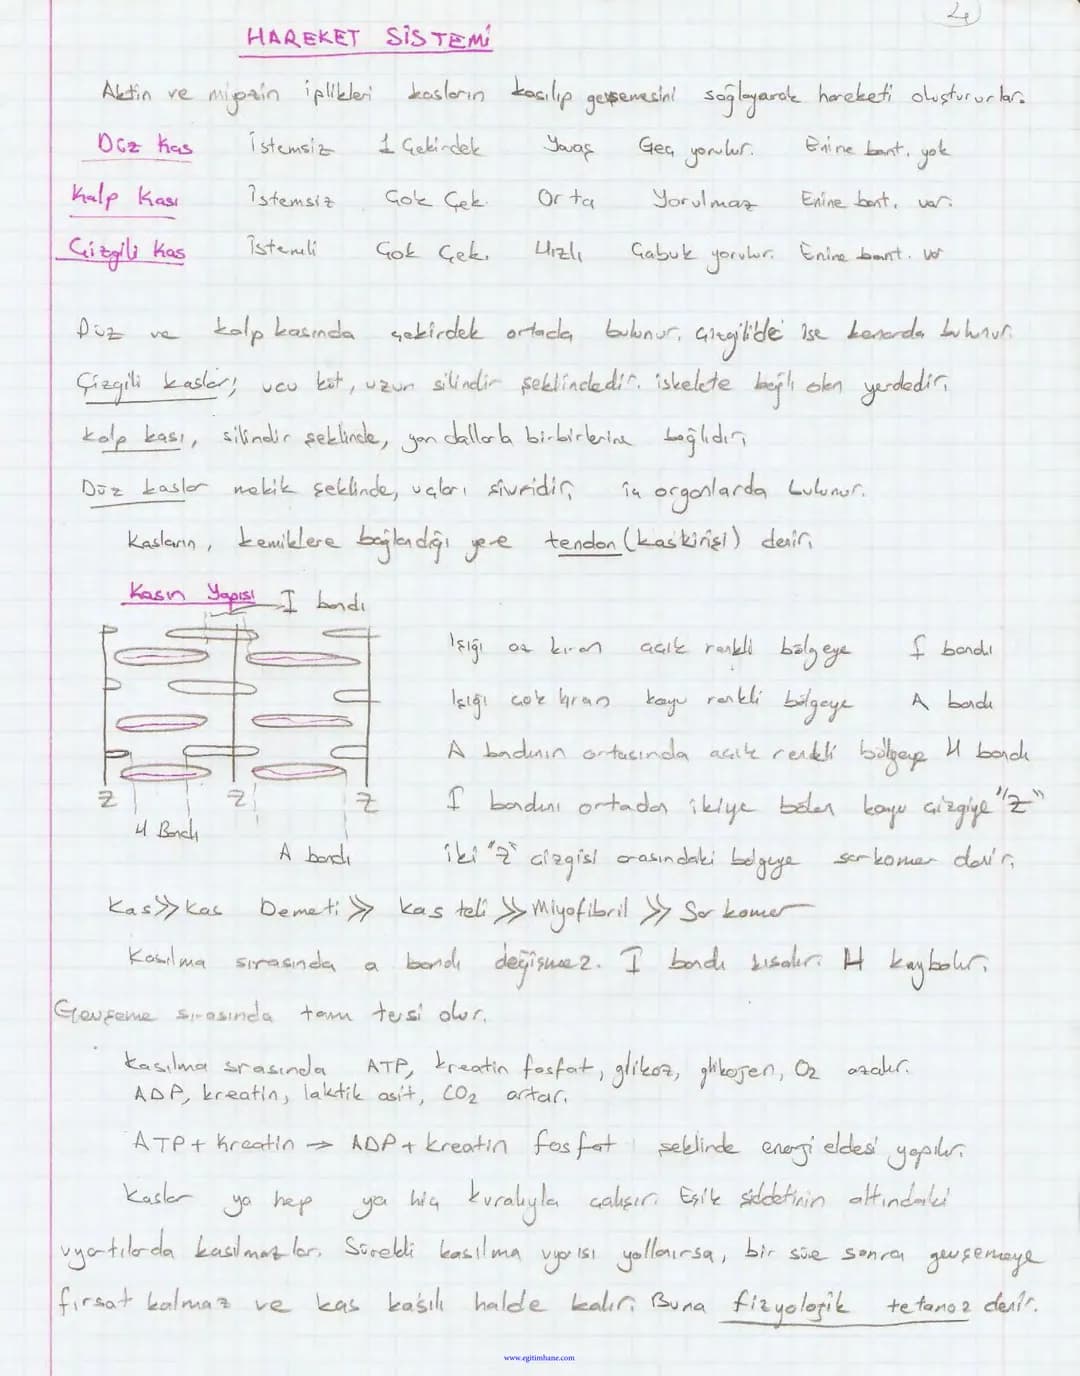 HAREKET SİSTEMİ
Aktin ve miyozin iplikleri kasların kasılıp gevşemesini sağlayarak hareketi oluştururlar.
Düz Kas İstemsiz 1 Çekirdek Yavaş Geç yorulur. Enine bant. yok
Kalp Kası İstemsiz Çok Çek. Orta Yorulmaz Enine bant. var.
Çizgili Kas İstemli Çok Çek. Hızlı Çabuk yorulur. Enine bant. var
Düz ve kalp kasında çekirdek ortada bulunur, çizgilide ise kenarda bulunur.
Çizgili kaslar; ucu küt, uzun silindir şeklindedir. iskelete bağlı olan yerdedir.
kalp kası, silindir şeklinde, yan dallarla birbirlerine bağlıdır.
Düz kaslar mekik şeklinde, uçları sivridir, iç organlarda bulunur.
Kasların, kemiklere bağlandığı yere tendon (kas kirişi) denir.
Kasın Yapısı I bandı
Işığı az kıran açık renkli bölgeye I bandı
Işığı çok kıran koyu renkli bölgeye A bandı
A bandının ortasında açık renkli bölgeye H bandı
I bandını ortadan ikiye bölen koyu çizgiye "Z"
Z Z Z
H Bandı
A bandı
iki "Z" çizgisi arasındaki bölgeye sarkomer denir.
Kas >> Kas Demeti >> kas teli >> Miyofibril >> Sarkomer
Kasılma sırasında a bandı değişmez. I bandı kısalır. H kaybolur.
Gevşeme sırasında tam tersi olur.
Kasılma srasında ATP, kreatin fosfat, glikoz, glikojen, O2 azalır.
ADP, kreatin, laktik asit, CO2 artar.
ATP + Kreatin → ADP + kreatin fosfat şeklinde enerji eldesi yapılır.
Kaslar ya hep ya hiç kuralıyla çalışır. Eşik şiddetinin altındaki
uyartılarda kasılmazlar. Sürekli kasılma uyarısı yollanırsa, bir süre sonra gevşemeye
fırsat kalmaz ve kas kasılı halde kalır. Buna fizyolojik tetanoz denir.
www.egitimhane.com